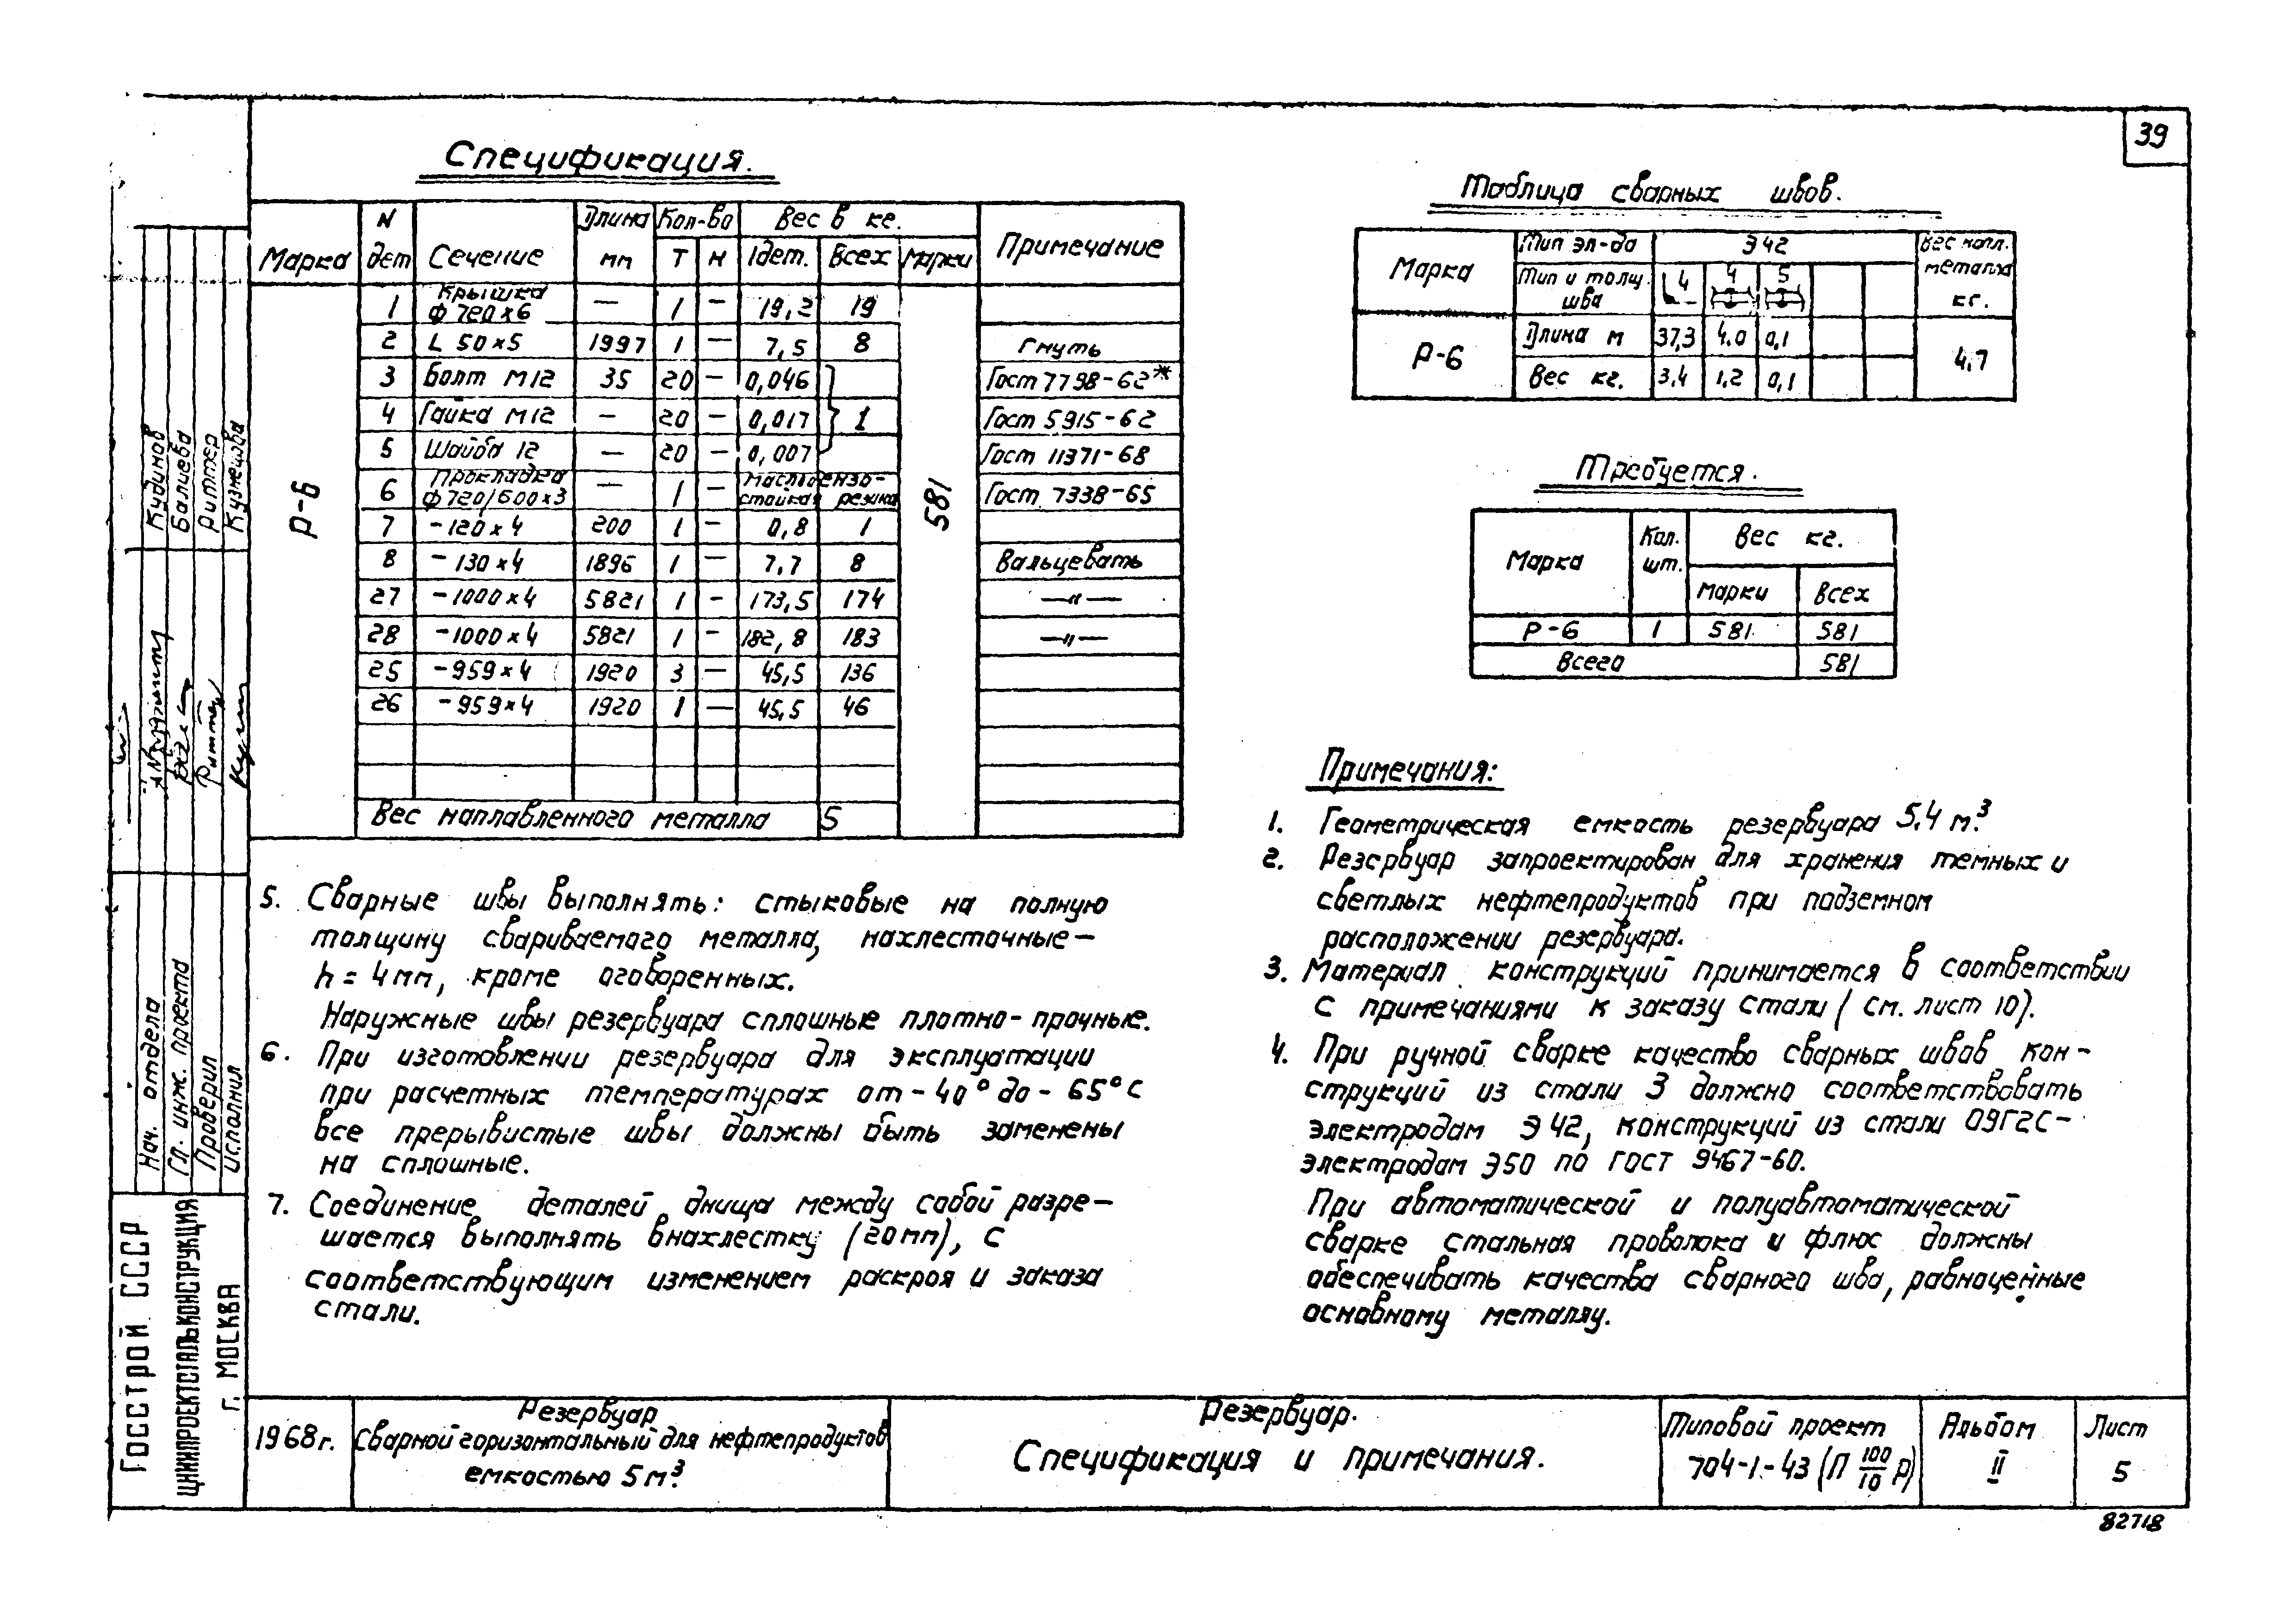 39
Спецификация.
Марка | N дет | Сечение | Длина мм | Кол-во Т Н | Вес в кг. 1дет. Всех Марки | Примечание
Р-6 | 581
1 | Крышка ф 720х6 | — | 1 | — | 19,2 | 19
2 | L 50х5 | 1997 | 1 | — | 7,5 | 8 | Гнуть
3 | Болт М12 | 35 | 20 | — | 0,046 | Гост 7798-62*
4 | Гайка М12 | — | 20 | — | 0,017 | 1 | Гост 5915-62
5 | Шайба 12 | — | 20 | — | 0,007 | Гост 11371-68
6 | Прокладка ф720/600х3 | — | 1 | — | Маслобензо-стойкая резина | Гост 7338-65
7 | -120х4 | 200 | 1 | — | 0,8 | 1
8 | -130х4 | 1896 | 1 | — | 7,7 | 8 | Вальцевать
27 | -1000х4 | 5821 | 1 | - | 173,5 | 174 | —"—
28 | -1000х4 | 5821 | 1 | - | 182,8 | 183 | —"—
25 | -959х4 | 1920 | 3 | — | 45,5 | 136
26 | -959х4 | 1920 | 1 | — | 45,5 | 46
Вес наплавленного металла | 5
Таблица сварных швов.
Марка | Тип эл-да | Э42 | Вес напл. металла кг.
Тип и толщ. шва | 4 | 4 | 5
Р-6 | Длина м | 37,3 | 4.0 | 0,1 | 4,7
Вес кг. | 3,4 | 1,2 | 0,1
Требуется.
Марка | Кол. шт. | Вес кг.
марки | Всех
Р-6 | 1 | 581 | 581
Всего | 581
Примечания:
1. Геометрическая емкость резервуара 5,4 м.³
2. Резервуар запроектирован для хранения темных и
светлых нефтепродуктов при подземном
расположении резервуара.
3. Материал конструкций принимается в соответствии
с примечаниями к заказу стали (см. лист 10).
4. При ручной сварке качество сварных швов кон-
струкций из стали 3 должно соответствовать
электродам Э42, конструкций из стали 09Г2С-
электродам Э50 по ГОСТ 9467-60.
При автоматической и полуавтоматической
сварке стальная проволока и флюс должны
обеспечивать качества сварного шва, равноценные
основному металлу.
5. Сварные швы выполнять: стыковые на полную
толщину свариваемого металла, нахлесточные —
h = 4мм, кроме оговоренных.
Наружные швы резервуара сплошные плотно-прочные.
6. При изготовлении резервуара для эксплуатации
при расчетных температурах от -40° до -65°С
все прерывистые швы должны быть заменены
на сплошные.
7. Соединение деталей днища между собой разре-
шается выполнять внахлестку (20мм), с
соответствующим изменением раскроя и заказа
стали.
Нач. отдела Кудинов
Гл. инж. проекта Балиева
Проверил Риттер
Исполнил Кузнецова
Госстрой СССР
ЦНИИПРОЕКТСТАЛЬКОНСТРУКЦИЯ
г. МОСКВА
1968г.
Резервуар
Сварной горизонтальный для нефтепродуктов
емкостью 5 м.³
Резервуар.
Спецификация и примечания.
Типовой проект
704-1-43 (П 100/10 Р)
Альбом
II
Лист
5
82718